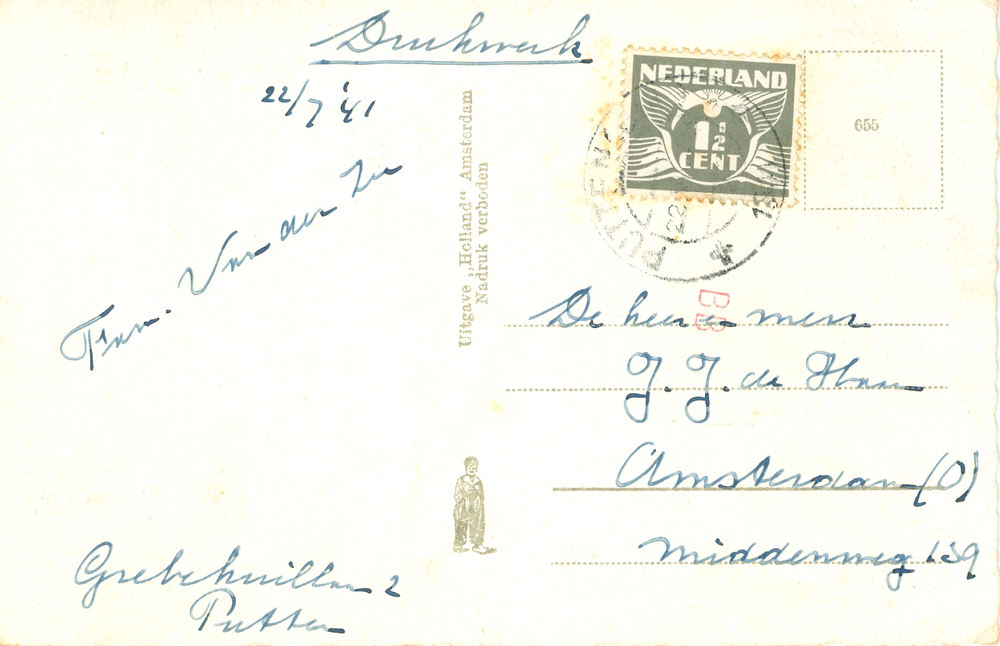 Drukwerk
22/7 '41
Fam. Van der Zee
Putten
Uitgave „Holland" Amsterdam
Nadruk verboden
NEDERLAND
1½
CENT
PUTTEN
22
655
BB
De heer en mevr
J. J. de Haan
Amsterdam (O)
Middenweg 139